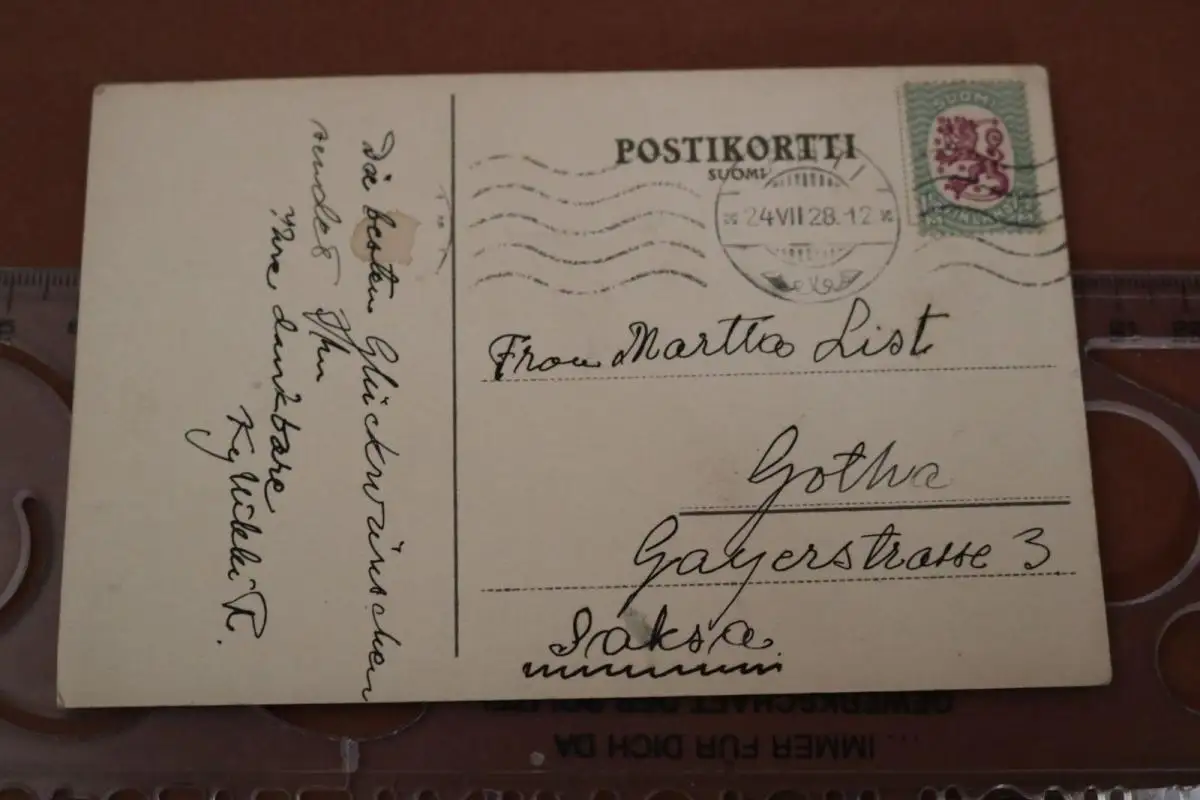 Die besten Glückwünschen
sendet Ihn
Ihre dankbare
Kyllikki R.
POSTIKORTTI
SUOMI
SUOMI
24 VII 28. 12
Frau Martta List
Gotha
Gayerstrasse 3
Saksa.
GEWERKSCHAFT DER POLIZEI
... IMMER FÜR DICH DA